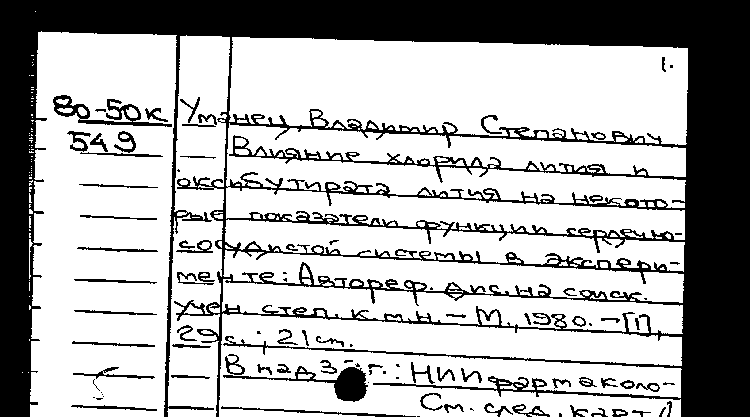 1.
80-50к Уманец, Владимир Степанович
549 Влияние хлорида лития и
оксибутирата лития на некото-
рые показатели функции сердечно-
сосудистой системы в экспери-
менте: Автореф. дис. на соиск.
учен. степ. к.м.н. — М., 1980. — [1],
29 с.; 21 см.
В над : НИИ фармаколо-
См. след. карт.